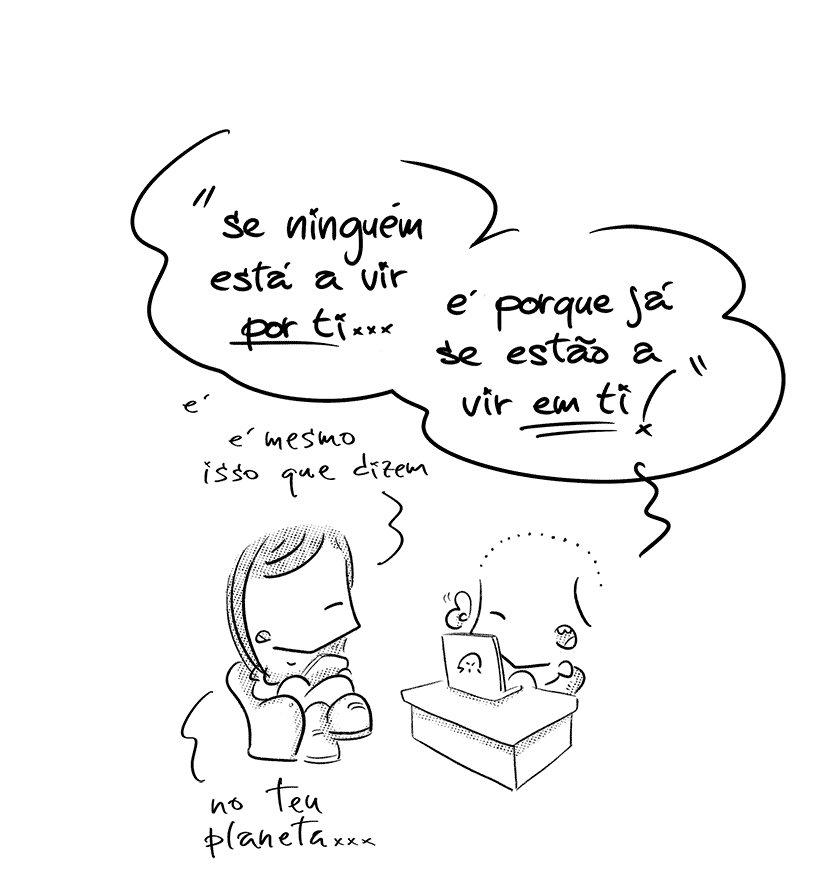 "se ninguém
está a vir
por ti...
é porque já
se estão a
vir em ti!"
é
é mesmo
isso que dizem
no teu
planeta...